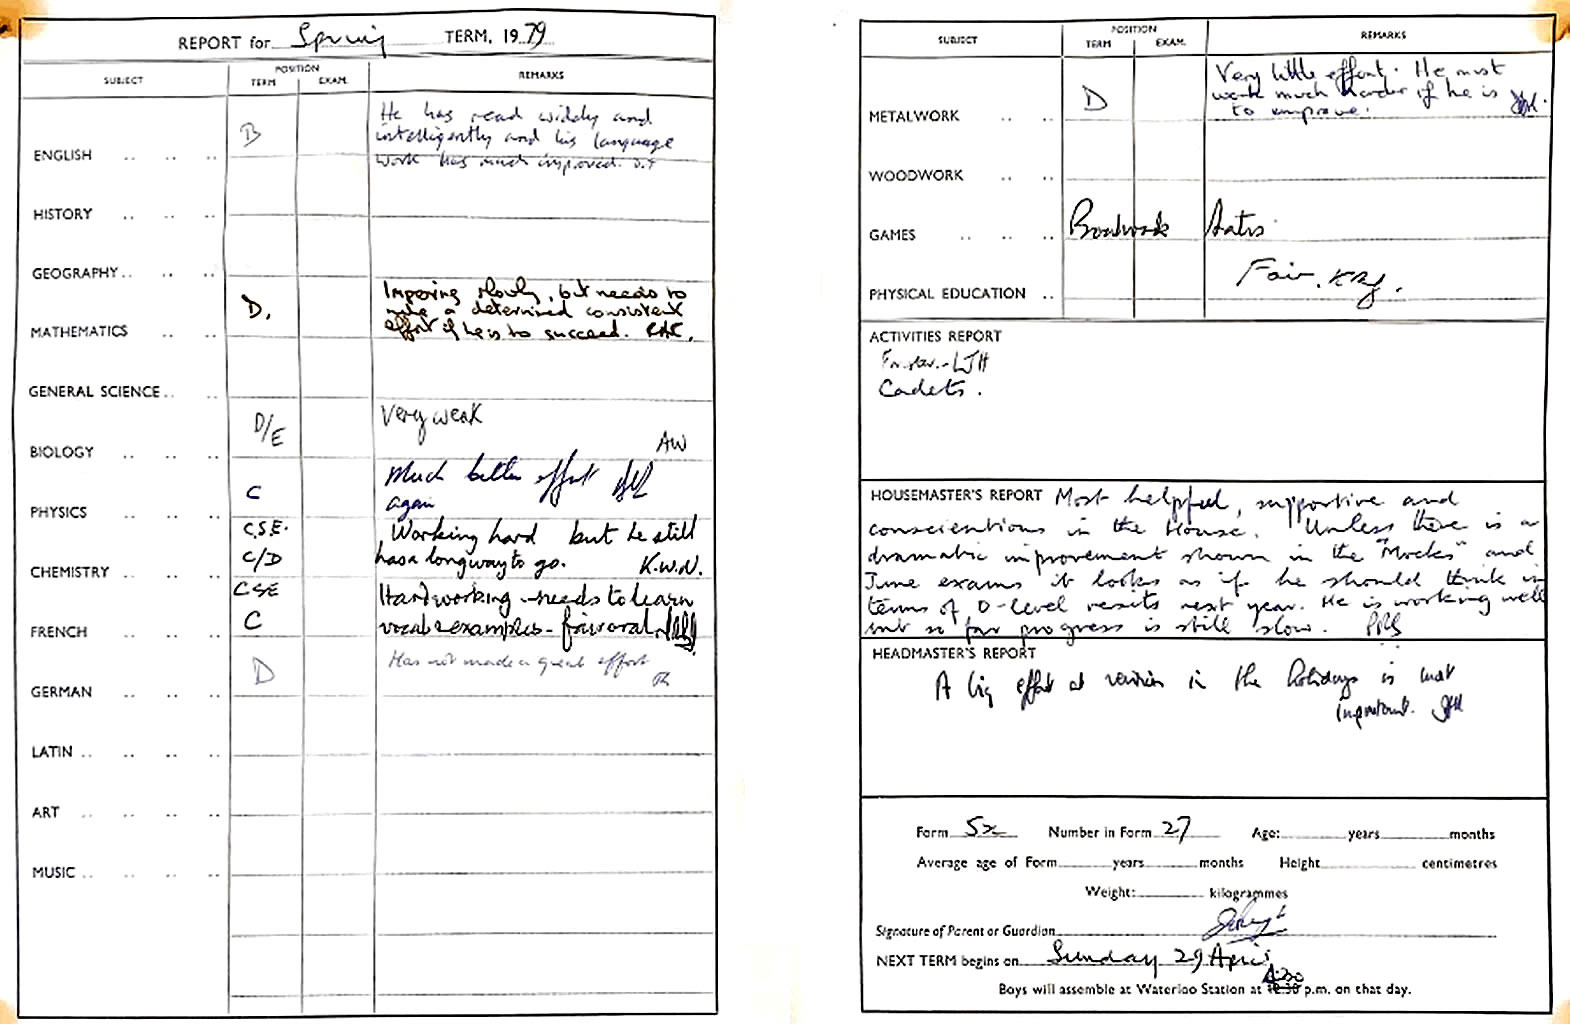 REPORT for Spring TERM, 1979
SUBJECT POSITION REMARKS
TERM EXAM.
ENGLISH B He has read widely and
intelligently and his language
work has much improved.
HISTORY
GEOGRAPHY
MATHEMATICS D. Improving slowly, but needs to
make a determined consistent
effort if he is to succeed.
GENERAL SCIENCE
BIOLOGY D/E Very weak
AW
PHYSICS C Much better effort
again
CHEMISTRY C.S.E. C/D Working hard but he still
has a long way to go. K.W.N.
FRENCH CSE C Hardworking - needs to learn
vocab & examples - fair oral.
GERMAN D Has not made a great effort
LATIN
ART
MUSIC
SUBJECT POSITION REMARKS
TERM EXAM.
METALWORK D Very little effort. He must
work much harder if he is
to improve.
WOODWORK
GAMES Boatwork
PHYSICAL EDUCATION Fair. KRJ.
ACTIVITIES REPORT
LJH
Cadets.
HOUSEMASTER'S REPORT Most helpful, supportive and
conscientious in the House. Unless there is a
dramatic improvement shown in the "Mocks" and
June exams it looks as if he should think in
terms of O-level resits next year. He is working well
but so far progress is still slow.
HEADMASTER'S REPORT
A big effort at revision in the holidays is most
important.
Form 5x Number in Form 27 Age: years months
Average age of Form years months Height centimetres
Weight: kilogrammes
Signature of Parent or Guardian
NEXT TERM begins on Sunday 29 April
Boys will assemble at Waterloo Station at p.m. on that day.